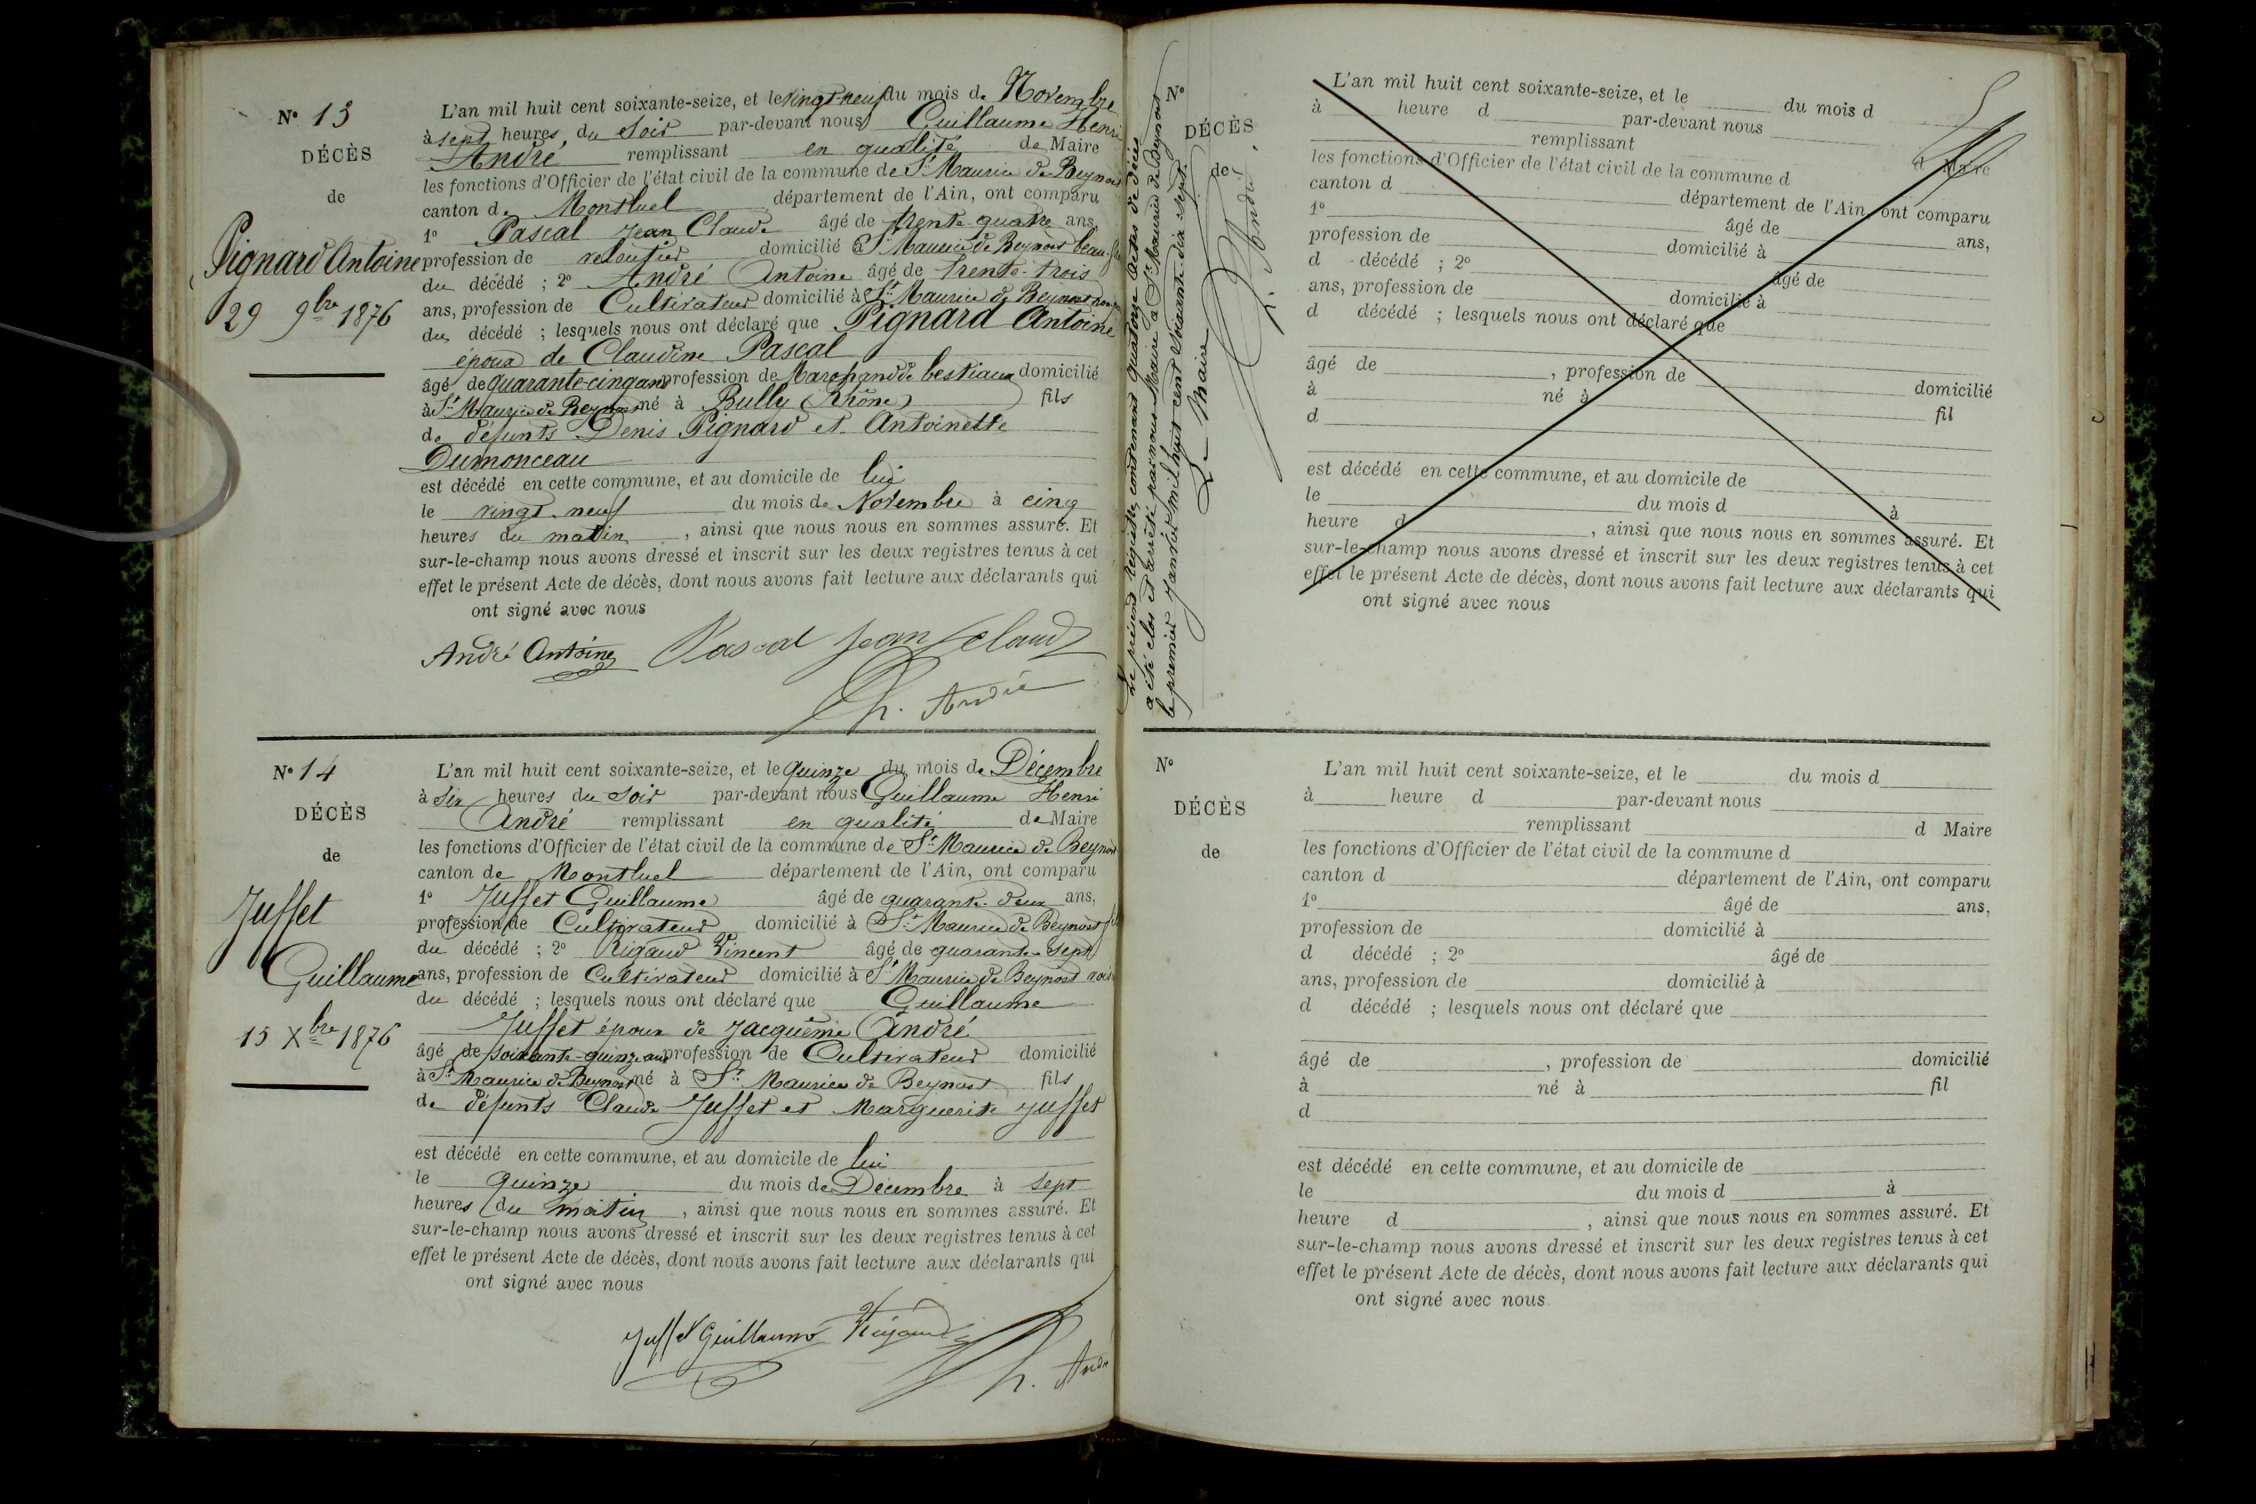 N° 13
DÉCÈS
de
Pignard Antoine
29 9bre 1876
L'an mil huit cent soixante-seize, et le vingt-neuf du mois de Novembre
à sept heures du Soir par-devant nous Guillaume Henri
André remplissant en qualité de Maire
les fonctions d'Officier de l'état civil de la commune de St Maurice de Beynost
canton de Montluel département de l'Ain, ont comparu
1° Pascal Jean Claude âgé de trente-quatre ans,
profession de veloutier domicilié à St Maurice de Beynost beau-
du décédé ; 2° André Antoine âgé de trente-trois
ans, profession de Cultivateur domicilié à St Maurice de Beynost
du décédé ; lesquels nous ont déclaré que Pignard Antoine
époux de Claudine Pascal
âgé de quarante-cinq ans profession de Marchand de bestiaux domicilié
à St Maurice de Beynost né à Bully (Rhône) fils
de défunts Denis Pignard et Antoinette
Dumonceau
est décédé en cette commune, et au domicile de lui
le vingt-neuf du mois de Novembre à cinq
heures du matin, ainsi que nous nous en sommes assuré. Et
sur-le-champ nous avons dressé et inscrit sur les deux registres tenus à cet
effet le présent Acte de décès, dont nous avons fait lecture aux déclarants qui
ont signé avec nous
André Antoine Pascal Jean Claude
h. André
N° 14
DÉCÈS
de
Juffet
Guillaume
15 Xbre 1876
L'an mil huit cent soixante-seize, et le quinze du mois de Décembre
à six heures du soir par-devant nous Guillaume Henri
André remplissant en qualité de Maire
les fonctions d'Officier de l'état civil de la commune de St Maurice de Beynost
canton de Montluel département de l'Ain, ont comparu
1° Juffet Guillaume âgé de quarante-deux ans,
profession de Cultivateur domicilié à St Maurice de Beynost fils
du décédé ; 2° Rigaud Vincent âgé de quarante-sept
ans, profession de Cultivateur domicilié à St Maurice de Beynost
du décédé ; lesquels nous ont déclaré que Guillaume
Juffet époux de Jacquême André
âgé de soixante-quinze ans profession de Cultivateur domicilié
à St Maurice de Beynost né à St Maurice de Beynost fils
de défunts Claude Juffet et Marguerite Juffet
est décédé en cette commune, et au domicile de lui
le quinze du mois de Décembre à sept
heures du matin, ainsi que nous nous en sommes assuré. Et
sur-le-champ nous avons dressé et inscrit sur les deux registres tenus à cet
effet le présent Acte de décès, dont nous avons fait lecture aux déclarants qui
ont signé avec nous
Juffet Guillaume Rigaud
h. André
Le présent Registre contenant quatorze Actes de décès
a été clos et arrêté par nous Maire à St Maurice de Beynost
le premier Janvier mil huit cent soixante-dix-sept.
Le Maire
h. André
N°
DÉCÈS
de
L'an mil huit cent soixante-seize, et le du mois d
à heure d par-devant nous
remplissant d Maire
les fonctions d'Officier de l'état civil de la commune d
canton d département de l'Ain, ont comparu
1° âgé de ans,
profession de domicilié à
d décédé ; 2° âgé de
ans, profession de domicilié à
d décédé ; lesquels nous ont déclaré que
âgé de , profession de domicilié
à né à fil
d
est décédé en cette commune, et au domicile de
le du mois d à
heure d , ainsi que nous nous en sommes assuré. Et
sur-le-champ nous avons dressé et inscrit sur les deux registres tenus à cet
effet le présent Acte de décès, dont nous avons fait lecture aux déclarants qui
ont signé avec nous
N°
DÉCÈS
de
L'an mil huit cent soixante-seize, et le du mois d
à heure d par-devant nous
remplissant d Maire
les fonctions d'Officier de l'état civil de la commune d
canton d département de l'Ain, ont comparu
1° âgé de ans,
profession de domicilié à
d décédé ; 2° âgé de
ans, profession de domicilié à
d décédé ; lesquels nous ont déclaré que
âgé de , profession de domicilié
à né à fil
d
est décédé en cette commune, et au domicile de
le du mois d à
heure d , ainsi que nous nous en sommes assuré. Et
sur-le-champ nous avons dressé et inscrit sur les deux registres tenus à cet
effet le présent Acte de décès, dont nous avons fait lecture aux déclarants qui
ont signé avec nous